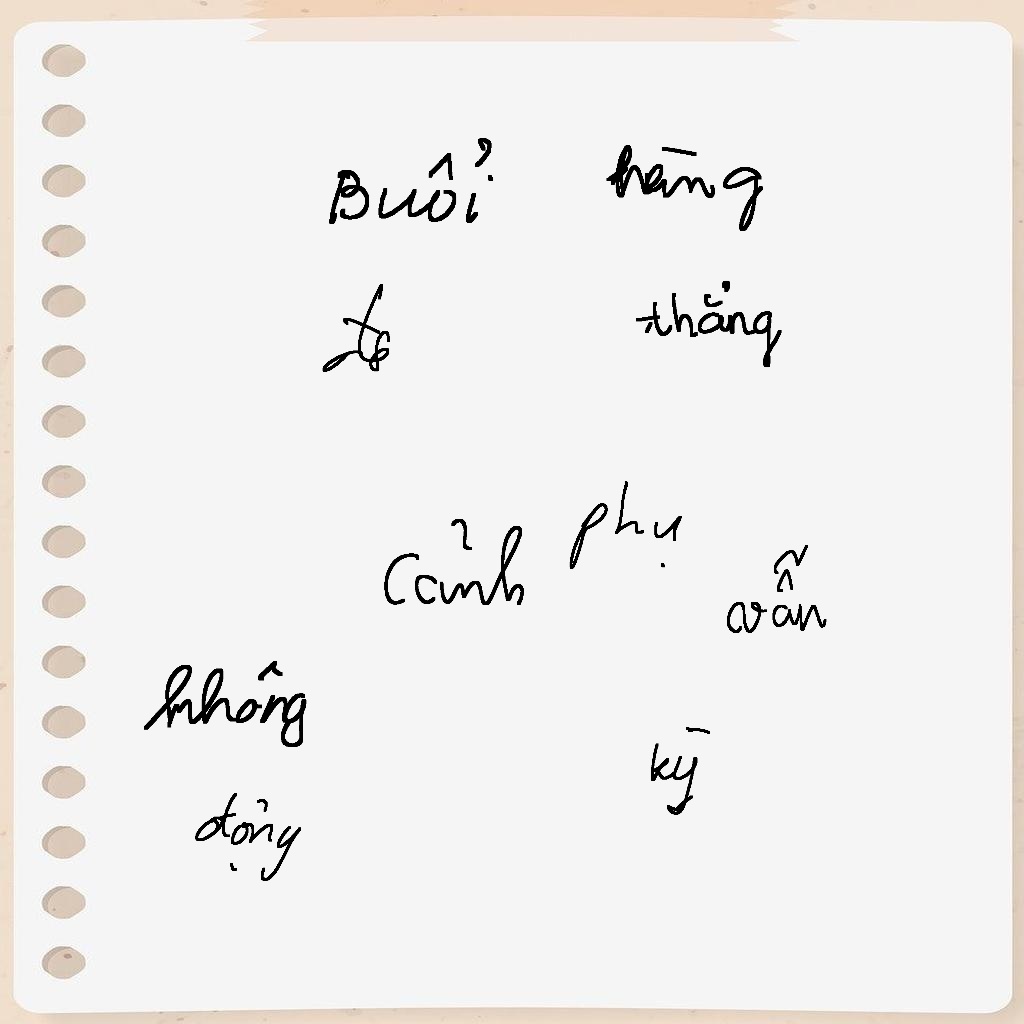 Buổi hàng
thẳng
Cảnh phụ
vẫn
không
kỳ
động